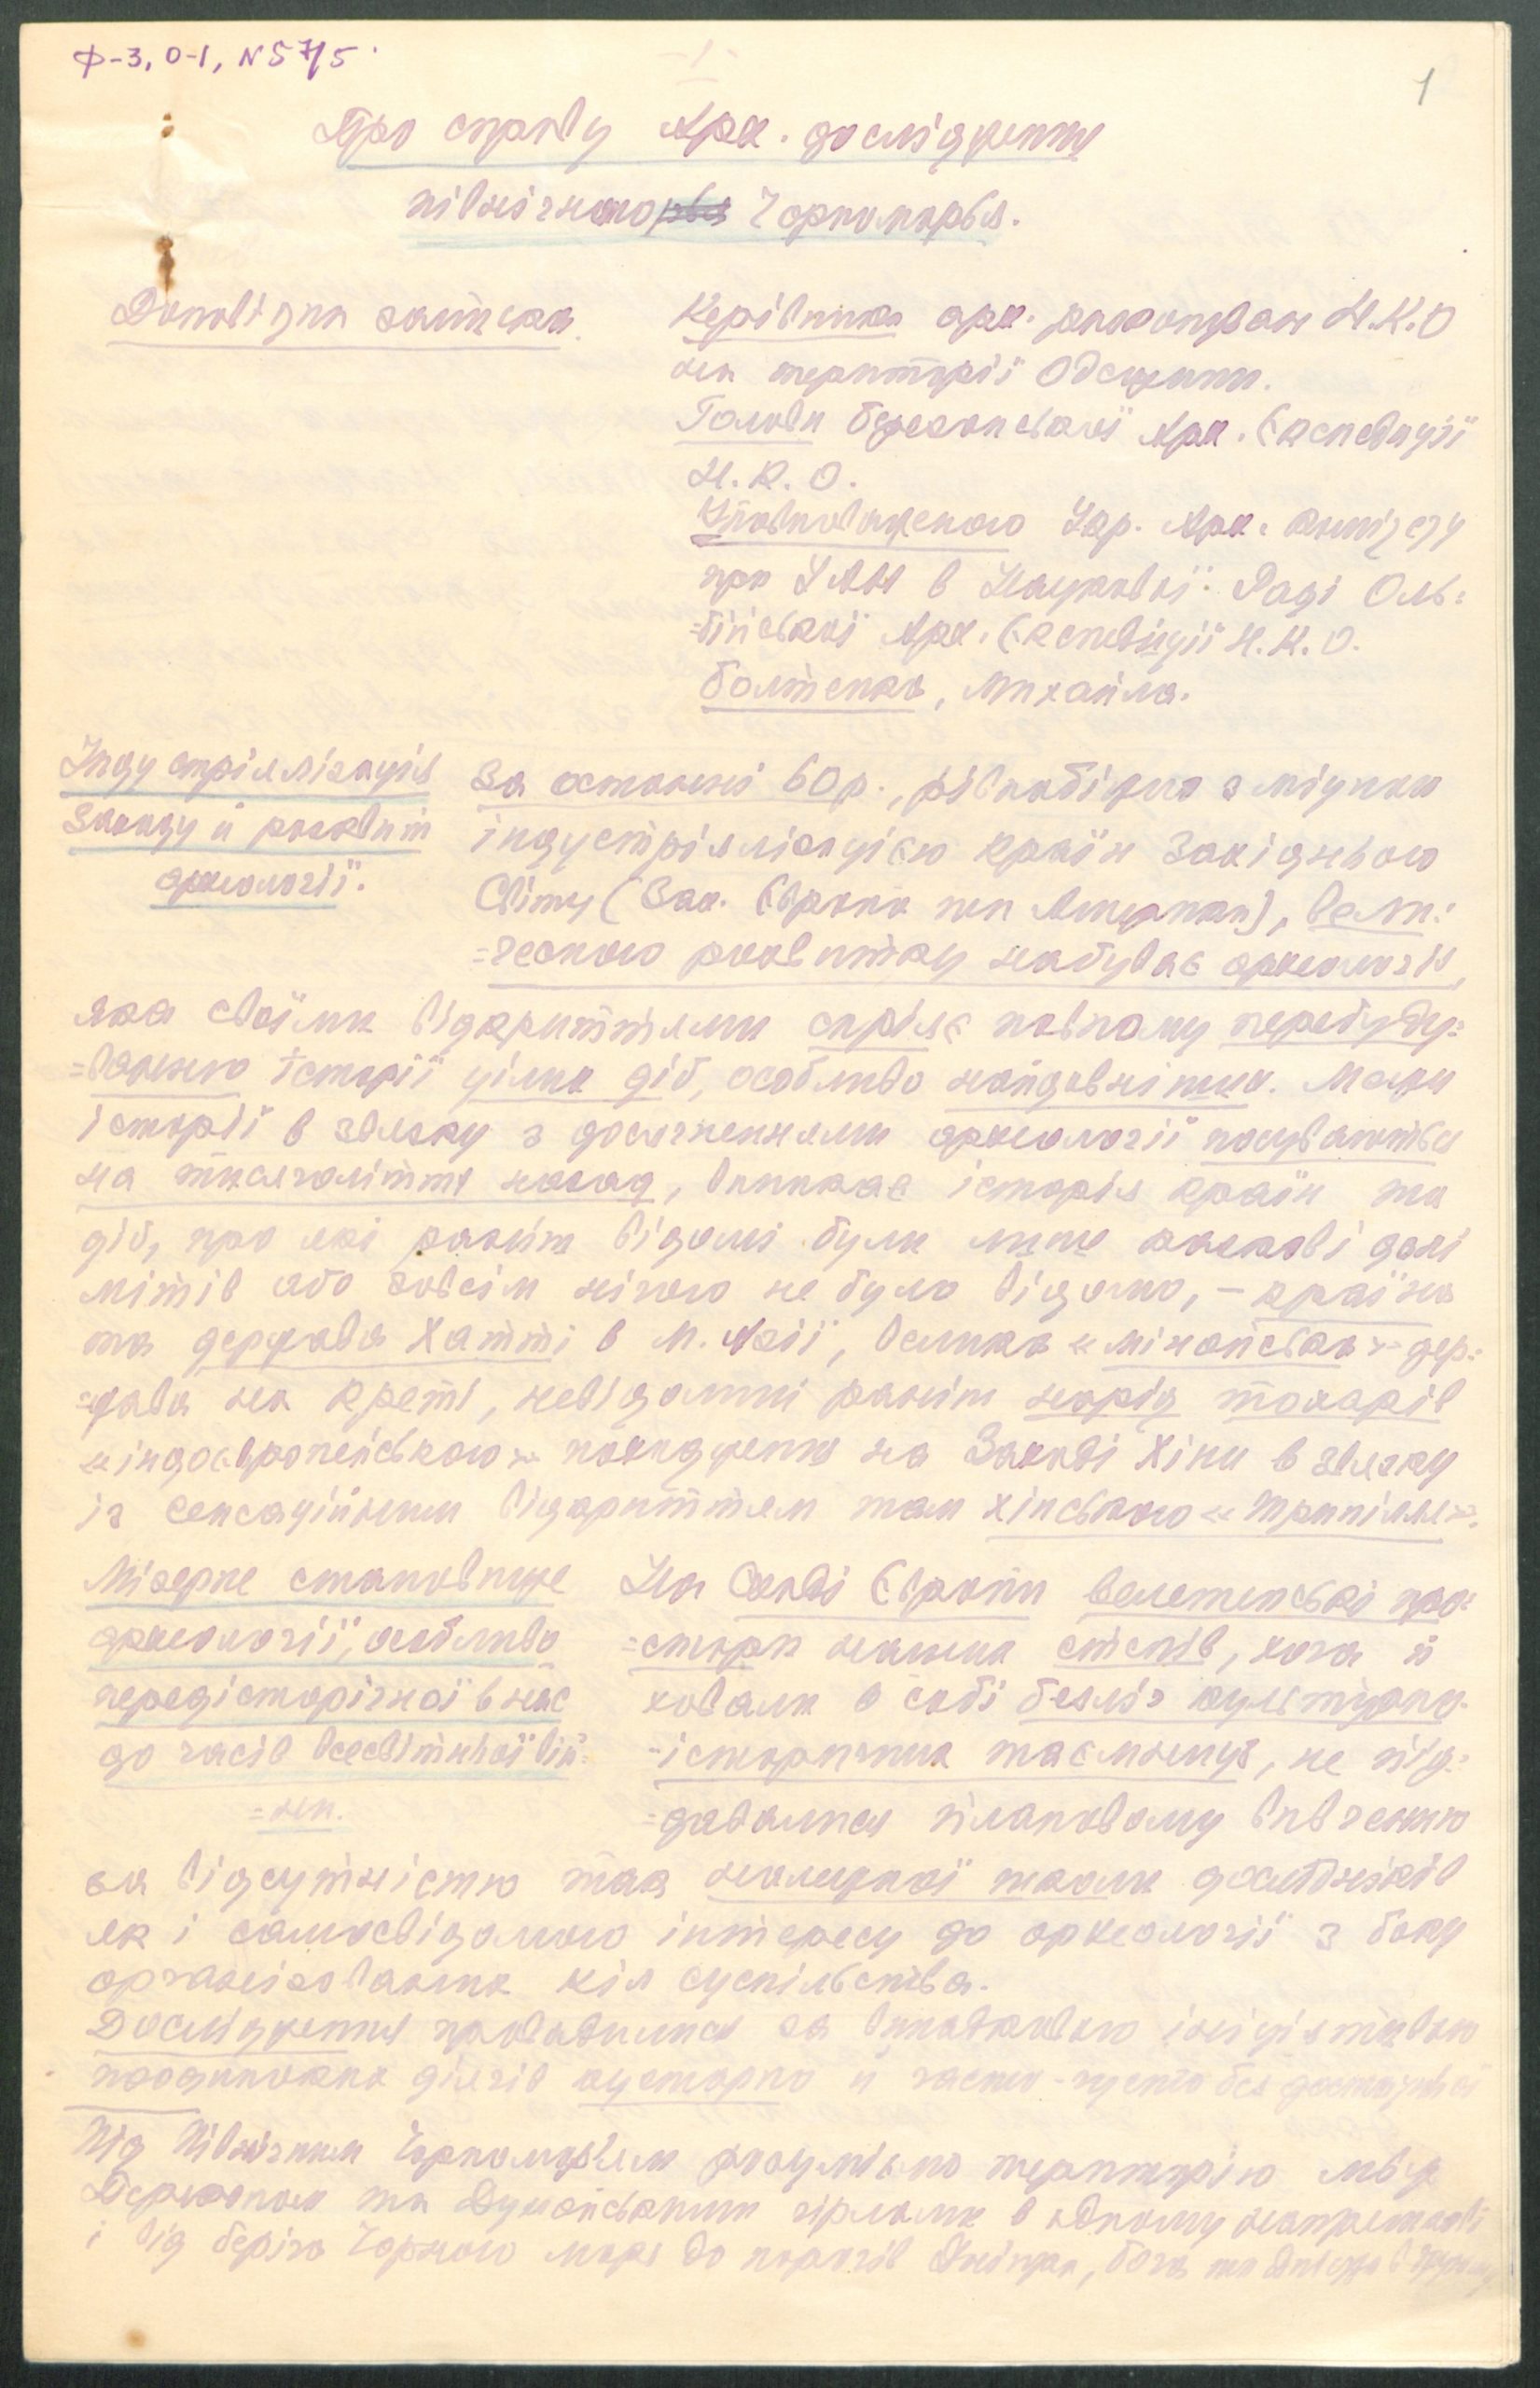 Ф-3, О-1, N 57/5
-1-
1
Про справу Арх. дослідження
північного Чорноморья.
Доповідна записка
Керівника арх. розкопувань Н.К.О
на території Одещини.
Голови березанської Арх. Експедиції
Н.К.О.
Уповноваженого Укр. Арх. комітету
при УАН в Науковій Раді Оль=
=бійської Арх. Експедиції Н.К.О.
Болтенка, Михайла.
Індустріялізація
Заходу й розквит
археології.
За останні 60 р., рівнобіжно з міцною
індустріялізацією країн Західнього
Світу (Зах. Европи та Америки), вели=
=чезного розвитку набуває археологія,
яка своїми відкриттями сприяє повному перебуду=
=ванню історії цілих діб, особливо найдавніших. Межи
історії в звязку з досягненнями археології посуваються
на тисячоліття назад, виникає історія країн та
діб, про які раніш відомі були лише казкові далі
мітів або зовсім нічого не було відомо, – країна
та держава Хатті в М. Азії, велика «мінойська» дер=
=жава на Креті, невідомий раніш нарід тохарів
«індоевропейського» походження на Заході Хіни в звязку
із сенсаційним відкриттям там хінського «Трипілля».
Мізерне становище
археології, особливо
передісторічної в нас
до часів всесвітньої вій=
=ни.
На Сході Европи велетенські про=
=стори наших степів, хоча й
ховали в собі безліч культурно-
-історичних таємниць, не під=
=давалися плановому вивченню
за відсутністю так належної школи дослідників
як і самосвідомого інтересу до археології з боку
організованих кіл суспільства.
Дослідження провадилися за випадковою ініціятивою
поодиноких діячів кустарно й часто-густо без достатньої
Під Північним Чорноморьем розуміємо територію між
Перекопом та Дунайськими гирлами в одному напрямкові
і від берега Чорного моря до порогів Дніпра, Бога та Дністра в другому